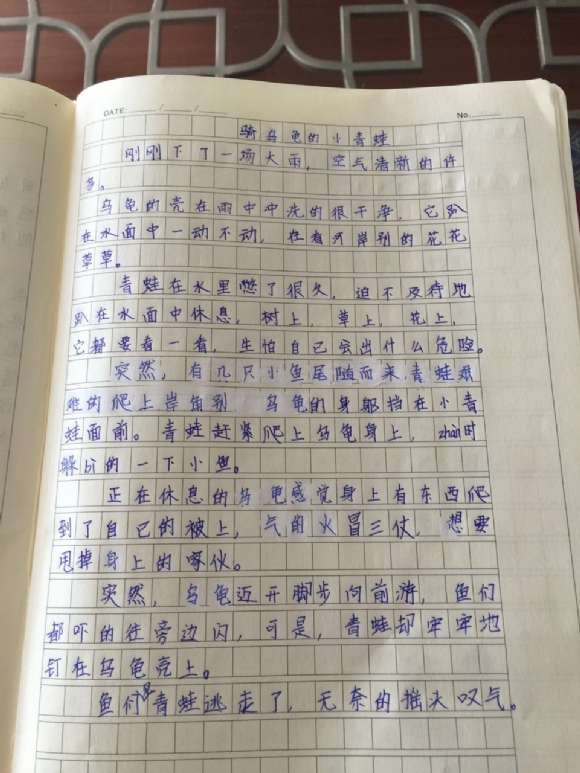 DATE: / / No.
骑乌龟的小青蛙
刚刚下了一场大雨，空气清新的许
多。
乌龟的壳在雨中中洗的很干净，它趴
在水面中一动不动，在看河岸别的花花
草草。
青蛙在水里憋了很久，迫不及待地
趴在水面中休息，树上，草上，花上，
它都要看一看，生怕自己会出什么危险。
突然，有几只小鱼尾随而来，青蛙艰
难的爬上岸 乌龟的身躯挡在小青
蛙面前。青蛙赶紧爬上乌龟身上，zhàn时
躲bì的一下小鱼。
正在休息的乌龟感觉身上有东西爬
到了自己的被上，气的火冒三仗，想要
甩掉身上的家伙。
突然，乌龟迈开脚步向前游，鱼们
都吓的往旁边闪，可是，青蛙却牢牢地
钉在乌龟壳上。
鱼们见青蛙逃走了，无奈的摇头叹气。